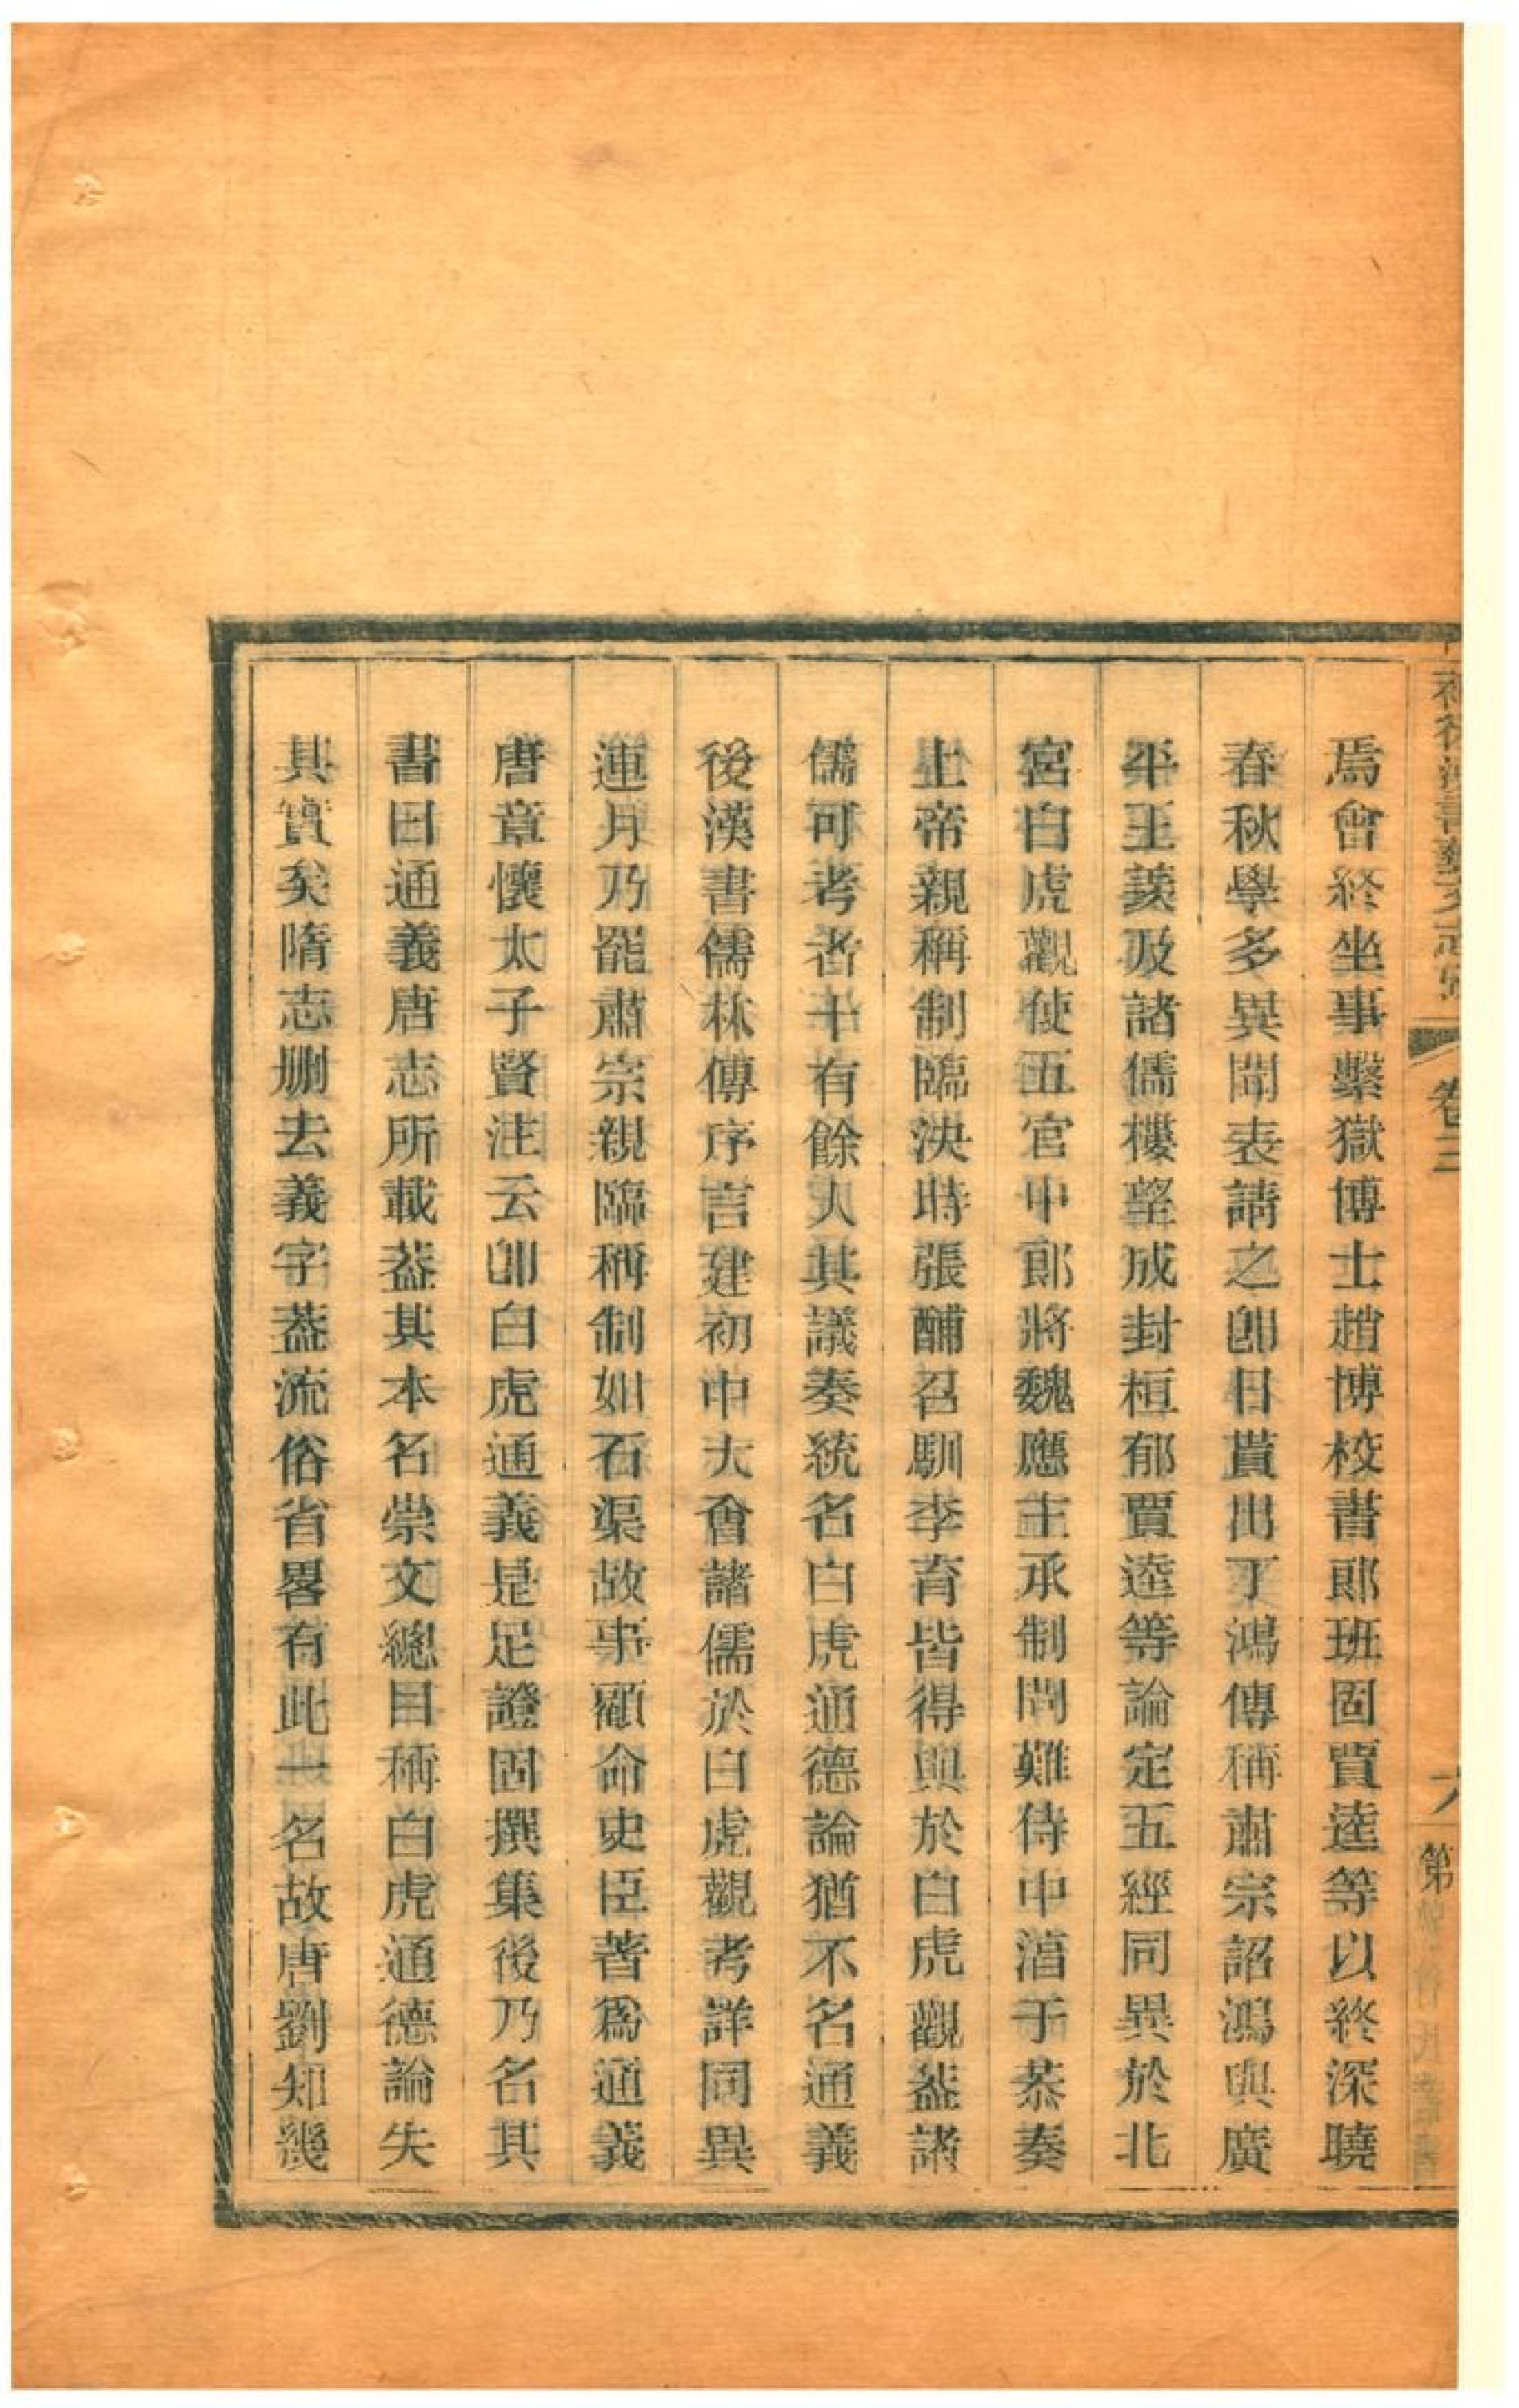 焉會終坐事繫獄博士趙博校書郞班固賈逵等以終深曉
春秋學多異聞表請之卽日貰出丁鴻傳稱肅宗詔鴻與廣
平王羨及諸儒樓望成封桓郁賈逵等論定五經同異於北
宮白虎觀使五官中郞將魏應主承制問難侍中淳于恭奏
上帝親稱制臨決時張酺召馴李育皆得與於白虎觀葢諸
儒可考者十有餘人其議奏統名白虎通德論猶不名通義
後漢書儒林傳序言建初中大會諸儒於白虎觀考詳同異
連月乃罷肅宗親臨稱制如石渠故事顧命史臣著爲通義
唐章懷太子賢注云卽白虎通義是足證固撰集後乃名其
書曰通義唐志所載葢其本名崇文總目稱白虎通德論失
其實矣隋志刪去義字葢流俗省畧有此一名故唐劉知幾
卷三
第